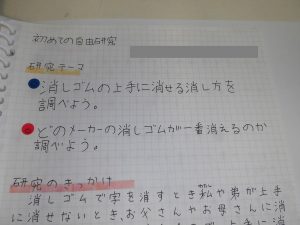 初めての自由研究
研究テーマ
消しゴムの上手に消せる消し方を
調べよう。
どのメーカーの消しゴムが一番消えるのか
調べよう。
研究のきっかけ
消しゴムで字を消すとき私や弟が上手
に消せないとき、お父さんやお母さんに消